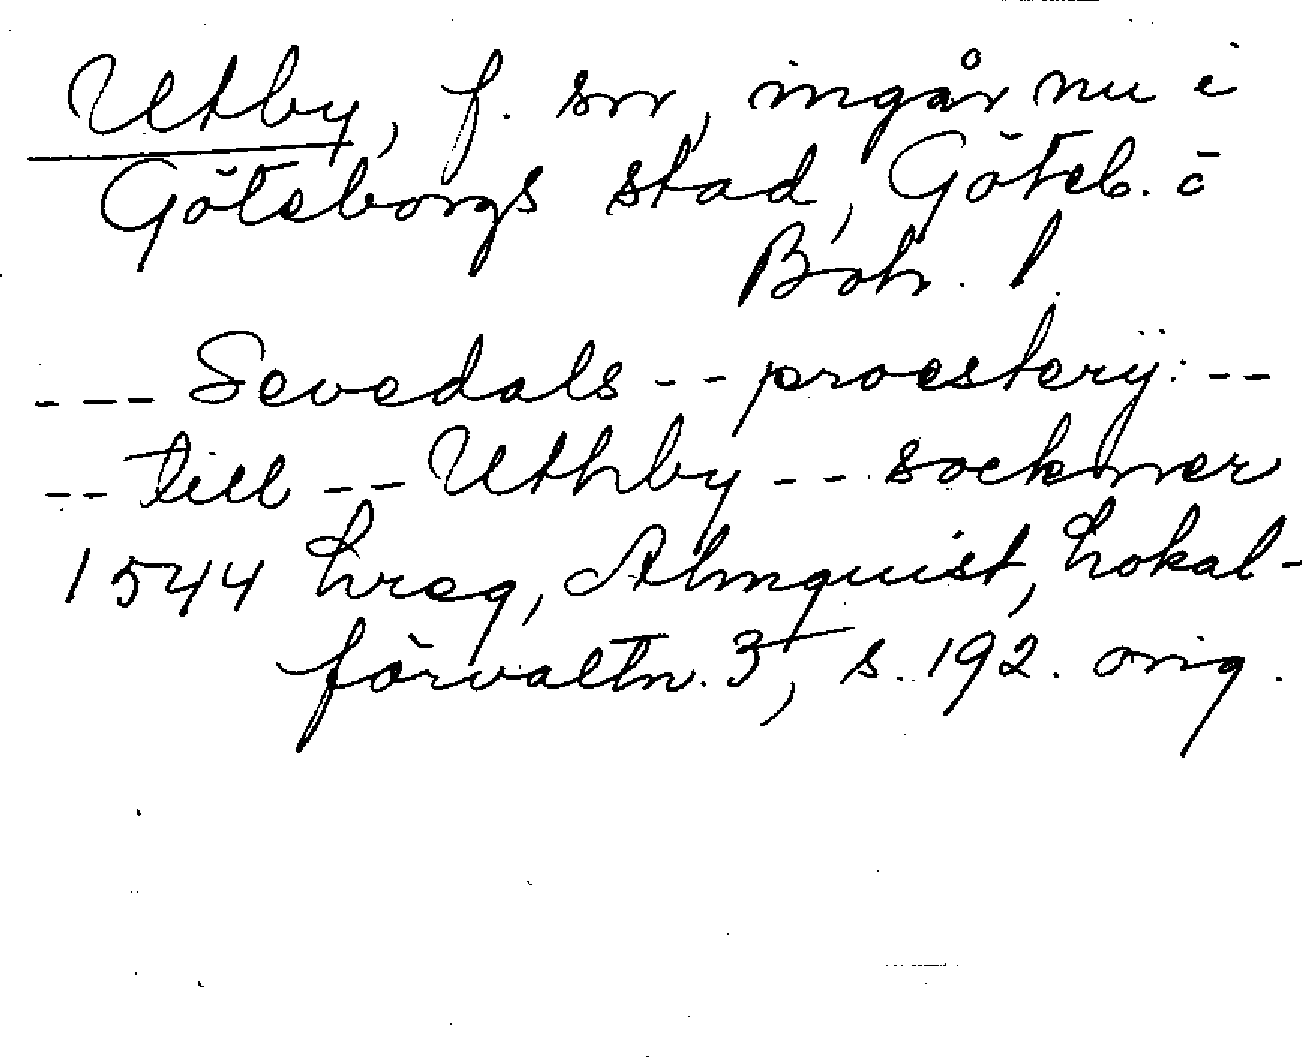 Utby, f. sn, ingår nu i
Göteborgs stad, Göteb. o
Boh. l.
--- Sevedals -- proesterij: --
-- till -- Uthby -- sockner
1544 Lreg, Almquist, Lokal-
förvaltn. 3, s. 192. orig.